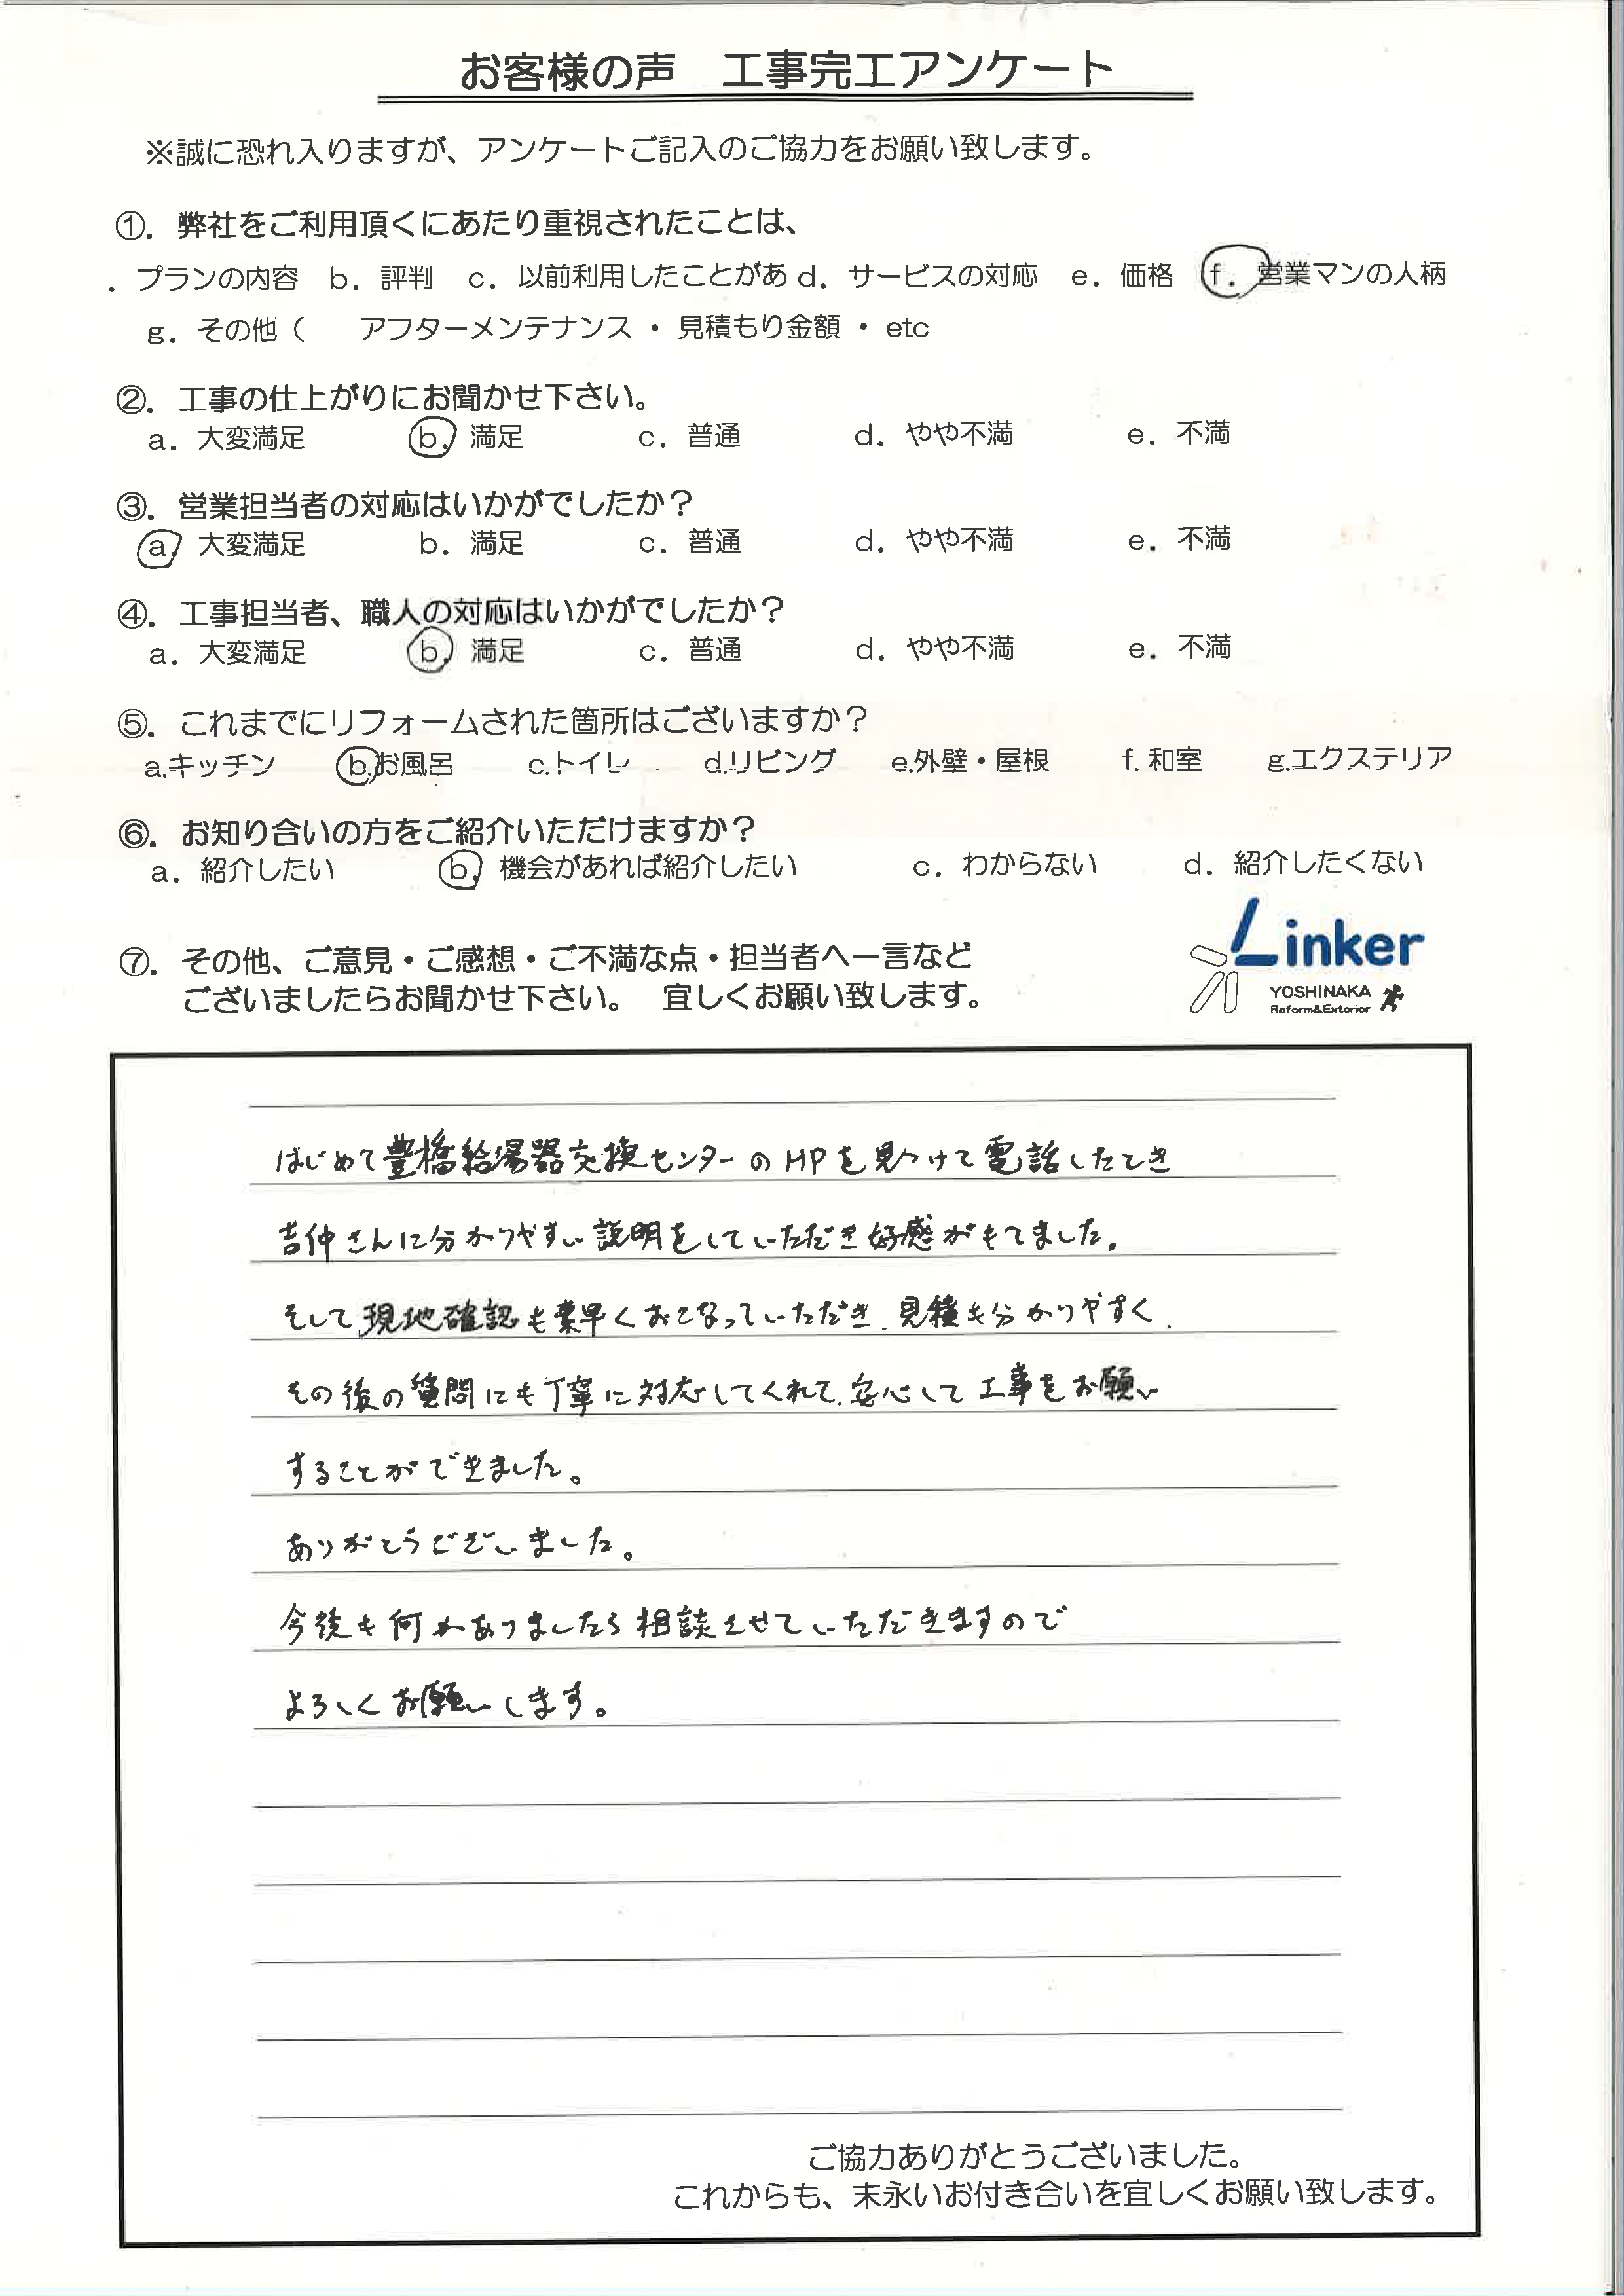 お客様の声　工事完工アンケート
※誠に恐れ入りますが、アンケートご記入のご協力をお願い致します。
①．弊社をご利用頂くにあたり重視されたことは、
．プランの内容　b．評判　c．以前利用したことがあ d．サービスの対応　e．価格　f．営業マンの人柄
g．その他（　　アフターメンテナンス・見積もり金額・etc
②．工事の仕上がりにお聞かせ下さい。
a．大変満足　b．満足　c．普通　d．やや不満　e．不満
③．営業担当者の対応はいかがでしたか？
a．大変満足　b．満足　c．普通　d．やや不満　e．不満
④．工事担当者、職人の対応はいかがでしたか？
a．大変満足　b．満足　c．普通　d．やや不満　e．不満
⑤．これまでにリフォームされた箇所はございますか？
a.キッチン　b.お風呂　c.トイレ　d.リビング　e.外壁・屋根　f.和室　g.エクステリア
⑥．お知り合いの方をご紹介いただけますか？
a．紹介したい　b．機会があれば紹介したい　c．わからない　d．紹介したくない
⑦．その他、ご意見・ご感想・ご不満な点・担当者へ一言など
ございましたらお聞かせ下さい。　宜しくお願い致します。
Linker
YOSHINAKA
Reform&Exterior
はじめて豊橋給湯器交換センターのHPを見つけて電話したとき
吉仲さんに分かりやすい説明をしていただき好感がもてました。
そして現地確認も素早くおこなっていただき、見積も分かりやすく、
その後の質問にも丁寧に対応してくれて、安心して工事をお願い
することができました。
ありがとうございました。
今後も何かありましたら相談させていただきますので
よろしくお願いします。
ご協力ありがとうございました。
これからも、末永いお付き合いを宜しくお願い致します。